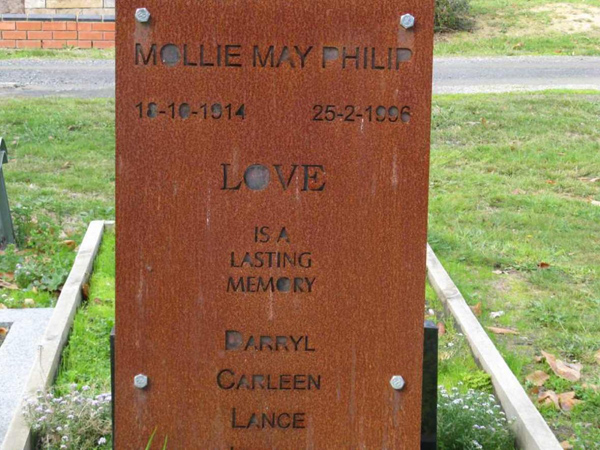 MOLLIE MAY PHILIP
18-10-1914 25-2-1996
LOVE
IS A
LASTING
MEMORY
DARRYL
CARLEEN
LANCE